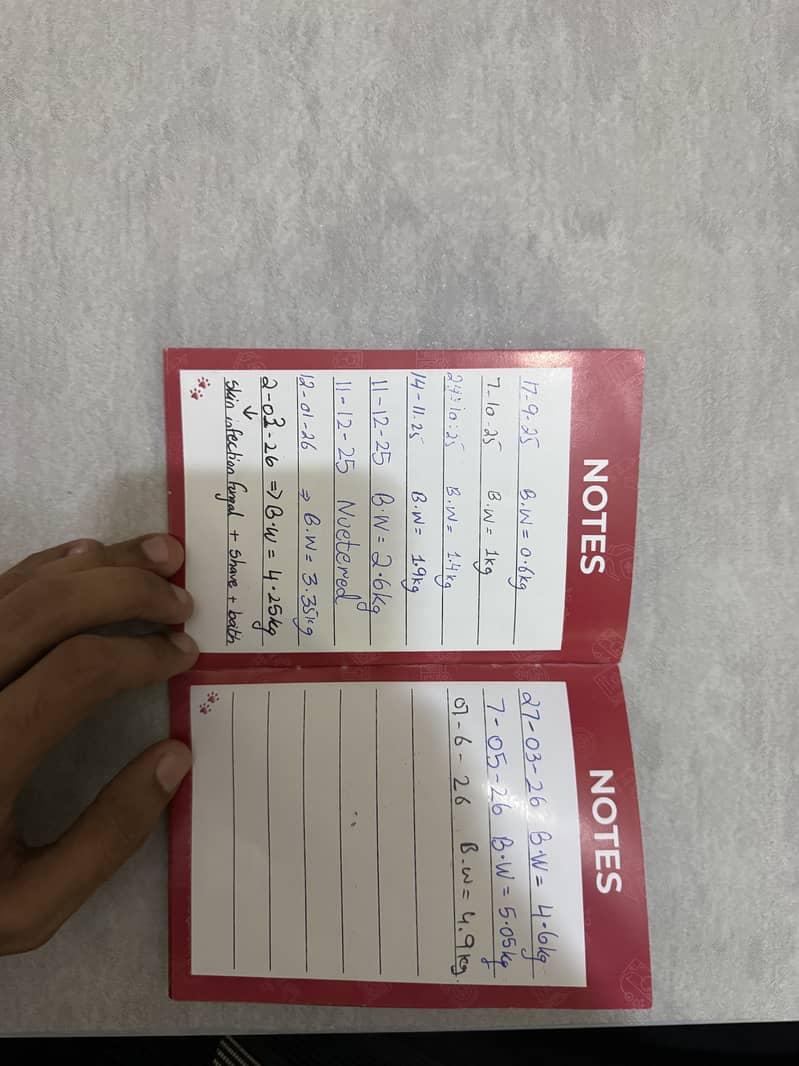 NOTES
17-9-25 B.W = 0.6kg
7-10-25 B.W = 1kg
24-10-25 B.W = 1.4kg
14-11-25 B.W = 1.9kg
11-12-25 B.W = 2.6kg
11-12-25 Nuetered
12-01-26 ⇒ B.W = 3.35kg
2-03-26 ⇒ B.W = 4.25kg
↓
skin infection fungal + shave + bath
NOTES
27-03-26 B.W = 4.6kg
7-05-26 B.W = 5.05kg
01-6-26 B.W = 4.9kg.